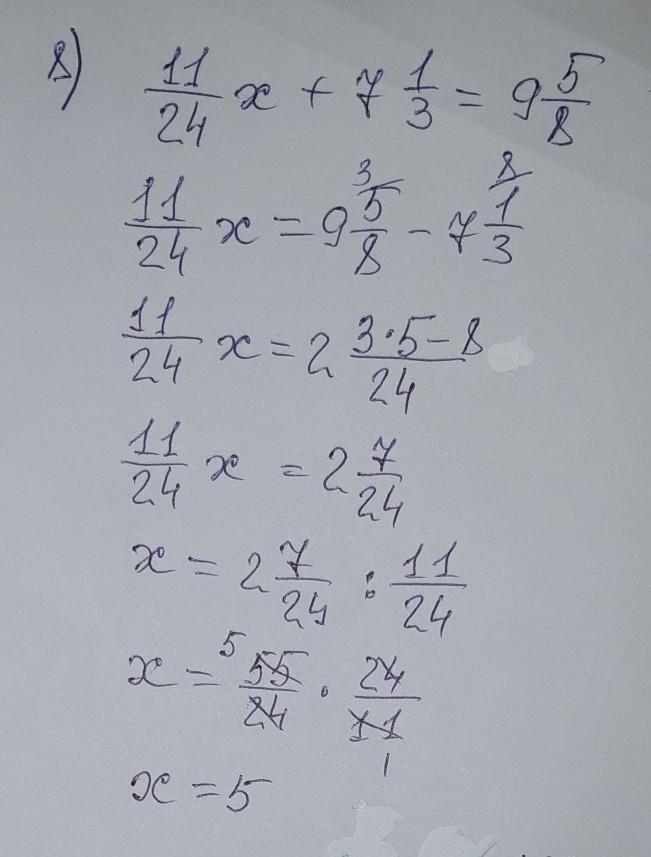 8) 11/24 x + 7 1/3 = 9 5/8
11/24 x = 9 5/8 ^3/ - 7 1/3 ^8/
11/24 x = 2 (3·5-8)/24
11/24 x = 2 7/24
x = 2 7/24 : 11/24
x = 55/24 · 24/11
5
1
x = 5